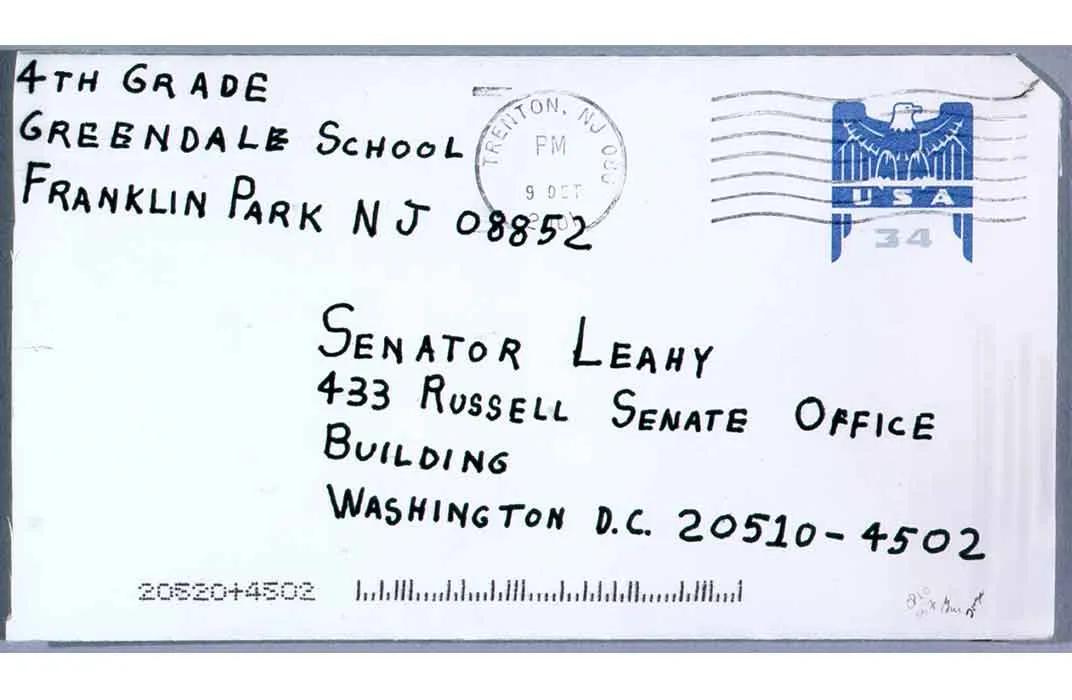 4TH GRADE
GREENDALE SCHOOL
FRANKLIN PARK NJ 08852
TRENTON, NJ
PM
9 OCT
USA
34
SENATOR LEAHY
433 RUSSELL SENATE OFFICE
BUILDING
WASHINGTON D.C. 20510-4502
20520+4502